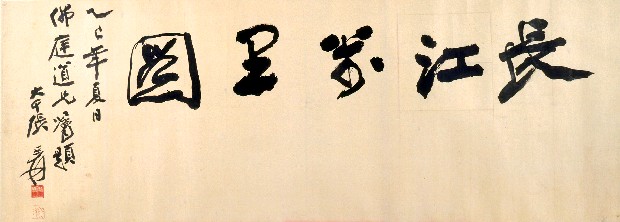 長江萬里圖
乙巳年夏日
佛庭道兄屬題
大千張爰